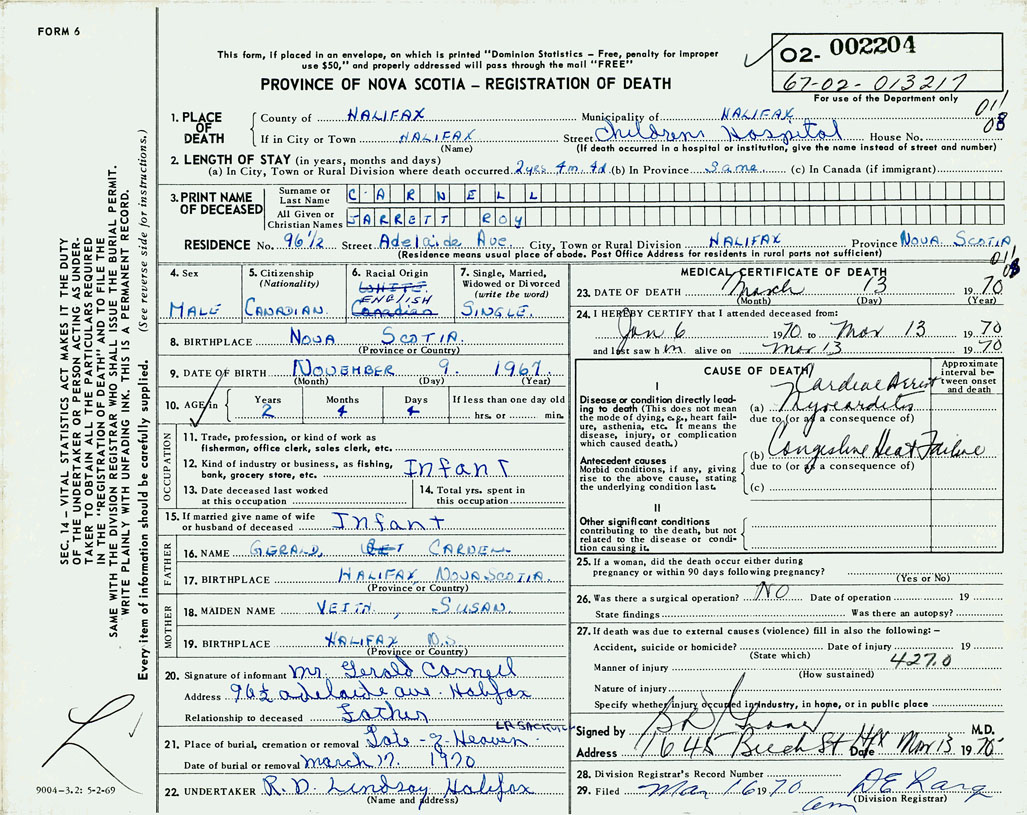 FORM 6
This form, if placed in an envelope, on which is printed "Dominion Statistics – Free, penalty for improper
use $50," and properly addressed will pass through the mail "FREE"
PROVINCE OF NOVA SCOTIA – REGISTRATION OF DEATH
02- 002204
67-02-013217
For use of the Department only
011
08
1. PLACE OF DEATH
County of HALIFAX Municipality of HALIFAX
If in City or Town HALIFAX Street Childrens Hospital House No.
(Name) (If death occurred in a hospital or institution, give the name instead of street and number)
2. LENGTH OF STAY (in years, months and days)
(a) In City, Town or Rural Division where death occurred 2yrs 4m. 4d. (b) In Province Same (c) In Canada (if immigrant)
3. PRINT NAME OF DECEASED
Surname or Last Name CARNELL
All Given or Christian Names JARRETT ROY
RESIDENCE No. 96 1/2 Street Adelaide Ave. City, Town or Rural Division HALIFAX Province NOVA SCOTIA
(Residence means usual place of abode. Post Office Address for residents in rural parts not sufficient)
011
08
4. Sex
MALE
5. Citizenship
(Nationality)
CANADIAN
6. Racial Origin
WHITE
ENGLISH
Canadian
7. Single, Married, Widowed or Divorced
(write the word)
SINGLE.
8. BIRTHPLACE NOVA SCOTIA
(Province or Country)
9. DATE OF BIRTH NOVEMBER 9. 1967
(Month) (Day) (Year)
10. AGE in
Years Months Days If less than one day old
2 4 4 hrs. or min.
OCCUPATION
11. Trade, profession, or kind of work as
fisherman, office clerk, sales clerk, etc.
12. Kind of industry or business, as fishing,
bank, grocery store, etc. Infant
13. Date deceased last worked
at this occupation
14. Total yrs. spent in
this occupation
15. If married give name of wife
or husband of deceased Infant
FATHER
16. NAME GERALD CARNELL
17. BIRTHPLACE HALIFAX, NOVA SCOTIA.
(Province or Country)
MOTHER
18. MAIDEN NAME VEITH, SUSAN.
19. BIRTHPLACE HALIFAX N.S.
(Province or Country)
20. Signature of informant Mr. Gerald Carnell
Address 96½ Adelaide ave. Halifax
Relationship to deceased Father
LR SACKVILLE
21. Place of burial, cremation or removal Gate-of-Heaven
Date of burial or removal March 17. 1970
22. UNDERTAKER R. D. Lindsay Halifax
(Name and address)
MEDICAL CERTIFICATE OF DEATH
23. DATE OF DEATH March 13 1970
(Month) (Day) (Year)
24. I HEREBY CERTIFY that I attended deceased from:
Jan 6 1970 to Mar 13 1970
and last saw him alive on Mar 13 1970
CAUSE OF DEATH
Approximate interval between onset and death
I
Disease or condition directly leading to death (This does not mean the mode of dying, e.g., heart failure, asthenia, etc. It means the disease, injury, or complication which caused death.)
Cardiac Arrest
(a) Myocarditis
due to (or as a consequence of)
Antecedent causes
Morbid conditions, if any, giving rise to the above cause, stating the underlying condition last.
(b) Congestive Heart Failure
due to (or as a consequence of)
(c)
II
Other significant conditions
contributing to the death, but not related to the disease or condition causing it.
25. If a woman, did the death occur either during
pregnancy or within 90 days following pregnancy?
(Yes or No)
26. Was there a surgical operation? NO Date of operation 19
State findings Was there an autopsy?
27. If death was due to external causes (violence) fill in also the following: –
Accident, suicide or homicide? Date of injury 19
(State which)
427.0
Manner of injury
(How sustained)
Nature of injury
Specify whether injury occurred in industry, in home, or in public place
Signed by M.D.
Address 1645 Beech St Hfx Date Mar 13 1970
28. Division Registrar's Record Number
29. Filed Mar 16 1970
(Division Registrar)
SEC. 14 – VITAL STATISTICS ACT MAKES IT THE DUTY
OF THE UNDERTAKER OR PERSON ACTING AS UNDER-
TAKER TO OBTAIN ALL THE PARTICULARS REQUIRED
IN THE "REGISTRATION OF DEATH" AND TO FILE THE
SAME WITH THE DIVISION REGISTRAR WHO SHALL ISSUE THE BURIAL PERMIT.
WRITE PLAINLY WITH UNFADING INK. THIS IS A PERMANENT RECORD.
Every item of information should be carefully supplied. (See reverse side for instructions.)
9004-3.2: 5-2-69